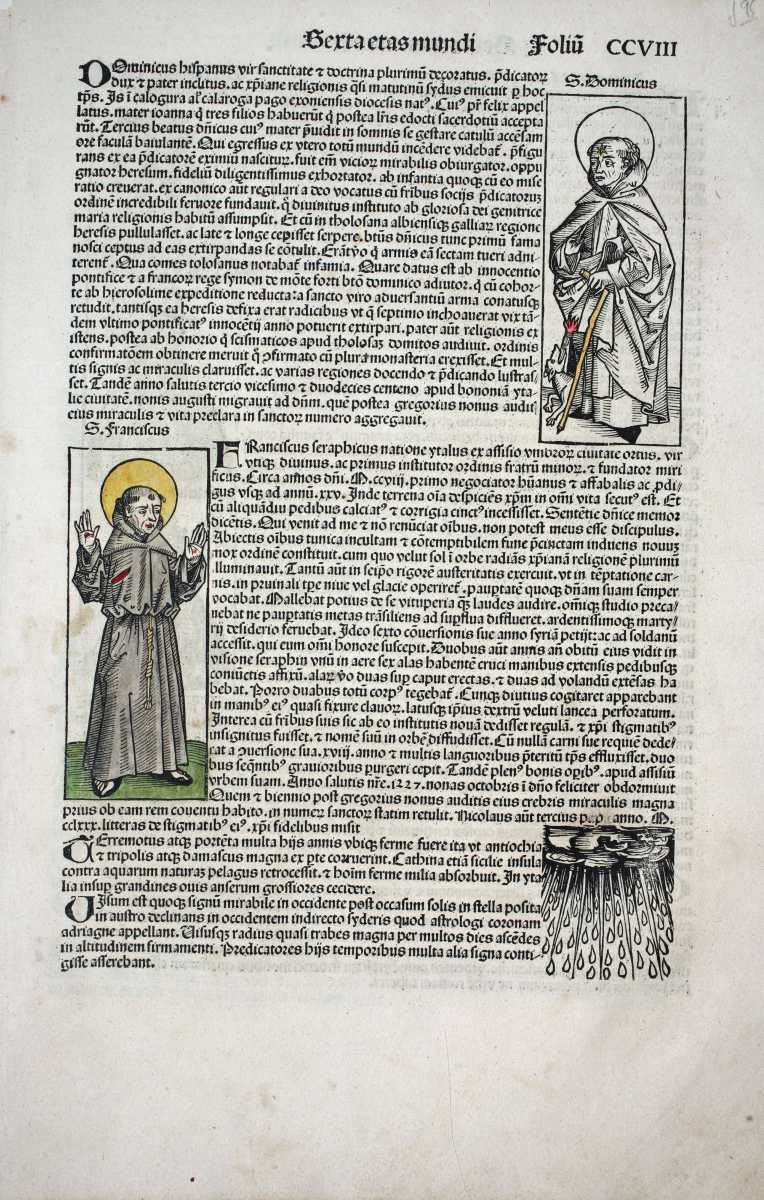 Sexta etas mundi Foliū CCVIII
DOminicus hispanus vir sanctitate ⁊ doctrina plurimū decoratus. p̄dicatoꝝ
S. Dominicus
dux ⁊ pater inclitus. ac xp̄iane religionis q̄si matutinū sydus emicuit ꝑ hoc
tp̄s. Is ī calogura al's calaroga pago exoniensis diocesis natꝰ. Cuiꝰ pr̄ felix appel
latus. mater ioanna q̄ tres filios habuerūt q̄ postea lr̄is edocti sacerdotiū accepta
rūt. Tercius beatus dn̄icus cuiꝰ mater p̄uidit in somnis se gestare catulū accēsam
ore faculā baiulantē. Qui egressus ex vtero totū mundū incēdere videbat̄. p̄figu
rans ex ea p̄dicatorē eximiū nascitur. fuit em̄ vicioꝝ mirabilis obiurgator. oppu
gnator heresum. fideliū diligentissimus exhortator. ab infantia quoqꝫ cū eo mise
ratio creuerat. ex canonico aūt regulari a deo vocatus cū fr̄ibus socijs p̄dicatorum
ordinē incredibili feruore fundauit. q̄ diuinitus instituto ab gloriosa dei genitrice
maria religionis habitū assumpsit. Et cū in tholosana albiensiqꝫ galliaꝝ regione
heresis pullulasset. ac late ⁊ longe cepisset serpere. btūs dn̄icus tunc primū fama
nosci ceptus ad eas extirpandas se cōtulit. Erāt v̊o q̄ armis eā sectam tueri adni
terent̄. Qua comes tolosanus notabat̄ infamia. Quare datus est ab innocentio
pontifice ⁊ a francoꝝ rege symon de mōte forti btō dominico adiutor. q̄ cū cohor⸗
te ab hierosolime expeditione reducta: a sancto viro aduersantiū arma conatusqꝫ
retudit. tantisqꝫ ea heresis defixa erat radicibus vt q̄ septimo inchoauerat vix tā⸗
dem vltimo pontificatꝰ innocētij anno potuerit extirpari. pater aūt religionis ex
istens. postea ab honorio q̄ scismaticos apud tholosaz domitos audiuit. ordinis
confirmatōem obtinere meruit q̄ ꝯfirmato cū plura monasteria erexisset. Et mul⸗
tis signis ac miraculis claruisset. ac varias regiones docendo ⁊ p̄dicando lustras⸗
set. Tandē anno salutis tercio vicesimo ⁊ duodecies centeno apud bononiā yta⸗
lie ciuitatē. nonis augusti migrauit ad dn̄m. quē postea gregorius nonus audit⸗
eius miraculis ⁊ vita preclara in sanctoꝝ numero aggregauit.
S. Franciscus
FRanciscus seraphicus natione ytalus ex assisio vmbroꝝ ciuitate ortus. vir
vtiqꝫ diuinus. ac primus institutor ordinis fratrū minoꝝ. ⁊ fundator miri
ficus. Circa annos dn̄i. M.ccviij. primo negociator hūanus ⁊ affabalis ac ꝓdi⸗
gus vsqꝫ ad annū. xxv. Inde terrena oīa despiciēs xp̄m in om̄i vita secutꝰ est. Et
cū aliquādiu pedibus calciatꝰ ⁊ corrigia cinctꝰ incessisset. Sentētie dn̄ice memor
dicētis. Qui venit ad me ⁊ nō renūciat oībus. non potest meus esse discipulus.
Abiectis oībus tunica incultam ⁊ cōtemptibilem fune p̄cinctam induens nouuz
mox ordinē constituit. cum quo velut sol ī orbe radiās xp̄ianā religionē plurimū
illuminauit. Tantū aūt in seip̄o rigorē austeritatis exercuit. vt in tēptatione car⸗
nis. in pruinali tp̄e niue vel glacie operiret̄. pauꝑtatē quoqꝫ dn̄am suam semper
vocabat. Mallebat potius de se vituperia qꝫ laudes audire. om̄iqꝫ studio preca⸗
nebat ne pauꝑtatis metas trāsiliens ad suꝑflua difflueret. ardentissimoqꝫ marty⸗
rij desiderio feruebat. Ideo sexto cōuersionis sue anno syriā petijt: ac ad soldanū
accessit. qui eum om̄i honore suscepit. Duobus aūt annis an̄ obitū eius vidit in
visione seraphin vnū in aere sex alas habentē cruci manibus extensis pedibusqꝫ
coniūctis affixū. alaꝝ v̊o duas sup caput erectas. ⁊ duas ad volandū extēsas ha
bebat. Porro duabus totū corpꝰ tegebat̄. Cunqꝫ diutius cogitaret apparebant
in manibꝰ eiꝰ quasi fixure clauoꝝ. latusqꝫ ip̄ius dextrū veluti lancea perforatum.
Interea cū fr̄ibus suis sic ab eo institutis nouā dedisset regulā. ⁊ xp̄i stigmatibꝰ
insignitus fuisset. ⁊ nomē suū in orbē diffudisset. Cū nullā carni sue requiē dede⸗
rat a ꝯuersione sua. xviij. anno ⁊ multis languoribus p̄teritū tp̄s effluxisset. duo
bus seq̄ntibꝰ grauioribus purgeri cepit. Tandē plenꝰ bonis oꝑibꝰ. apud assisiū
vrbem suam. Anno salutis nr̄e. 1227. nonas octobris ī dn̄o feliciter obdormiuit
Quem ⁊ biennio post gregorius nonus auditis eius crebris miraculis magna
prius ob eam rem couentu habito. in numeꝝ sanctoꝝ statim retulit. Nicolaus aūt tercius papa anno. M.
cclxxx. litteras de stigmatibꝰ eiꝰ. xp̄i fidelibus misit
TErremotus atqꝫ portēta multa hijs annis vbiqꝫ ferme fuere ita vt antiochia
⁊ tripolis atqꝫ damascus magna ex ꝑte corruerint. Cathina etiā sicilie insula
contra aquarum naturaz pelagus retrocessit. ⁊ hoīm ferme milia absorbuit. In yta
lia insuꝑ grandines ouis anserum grossiores cecidere.
UIsum est quoqꝫ signū mirabile in occidente post occasum solis in stella posita
in austro declinans in occidentem indirecto syderis quod astrologi coronam
adriagne appellant. Uisusqꝫ radius quasi trabes magna per multos dies ascēdēs
in altitudinem firmamenti. Predicatores hijs temporibus multa alia signa conti⸗
gisse asserebant.